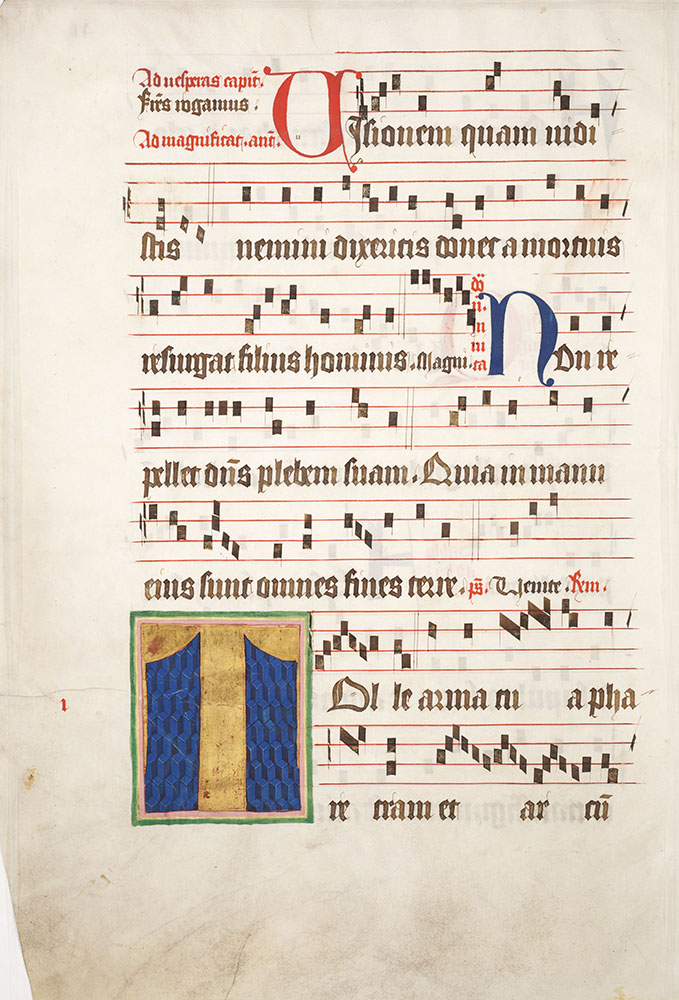 Ad uesperas capit̄.
Fr̄es rogamus.
Ad magnificat. ant̄.
Visionem quam uidi
stis nemini dixeritis donec a mortuis
resurgat filius hominis. Magni.
dō ii. in uita
Non re
pellet dn̄s plebem suam. Quia in manu
eius sunt omnes fines terre. ps̄. Venite. Rm.
1
Tol le arma tu a pha
re tram et ar cū